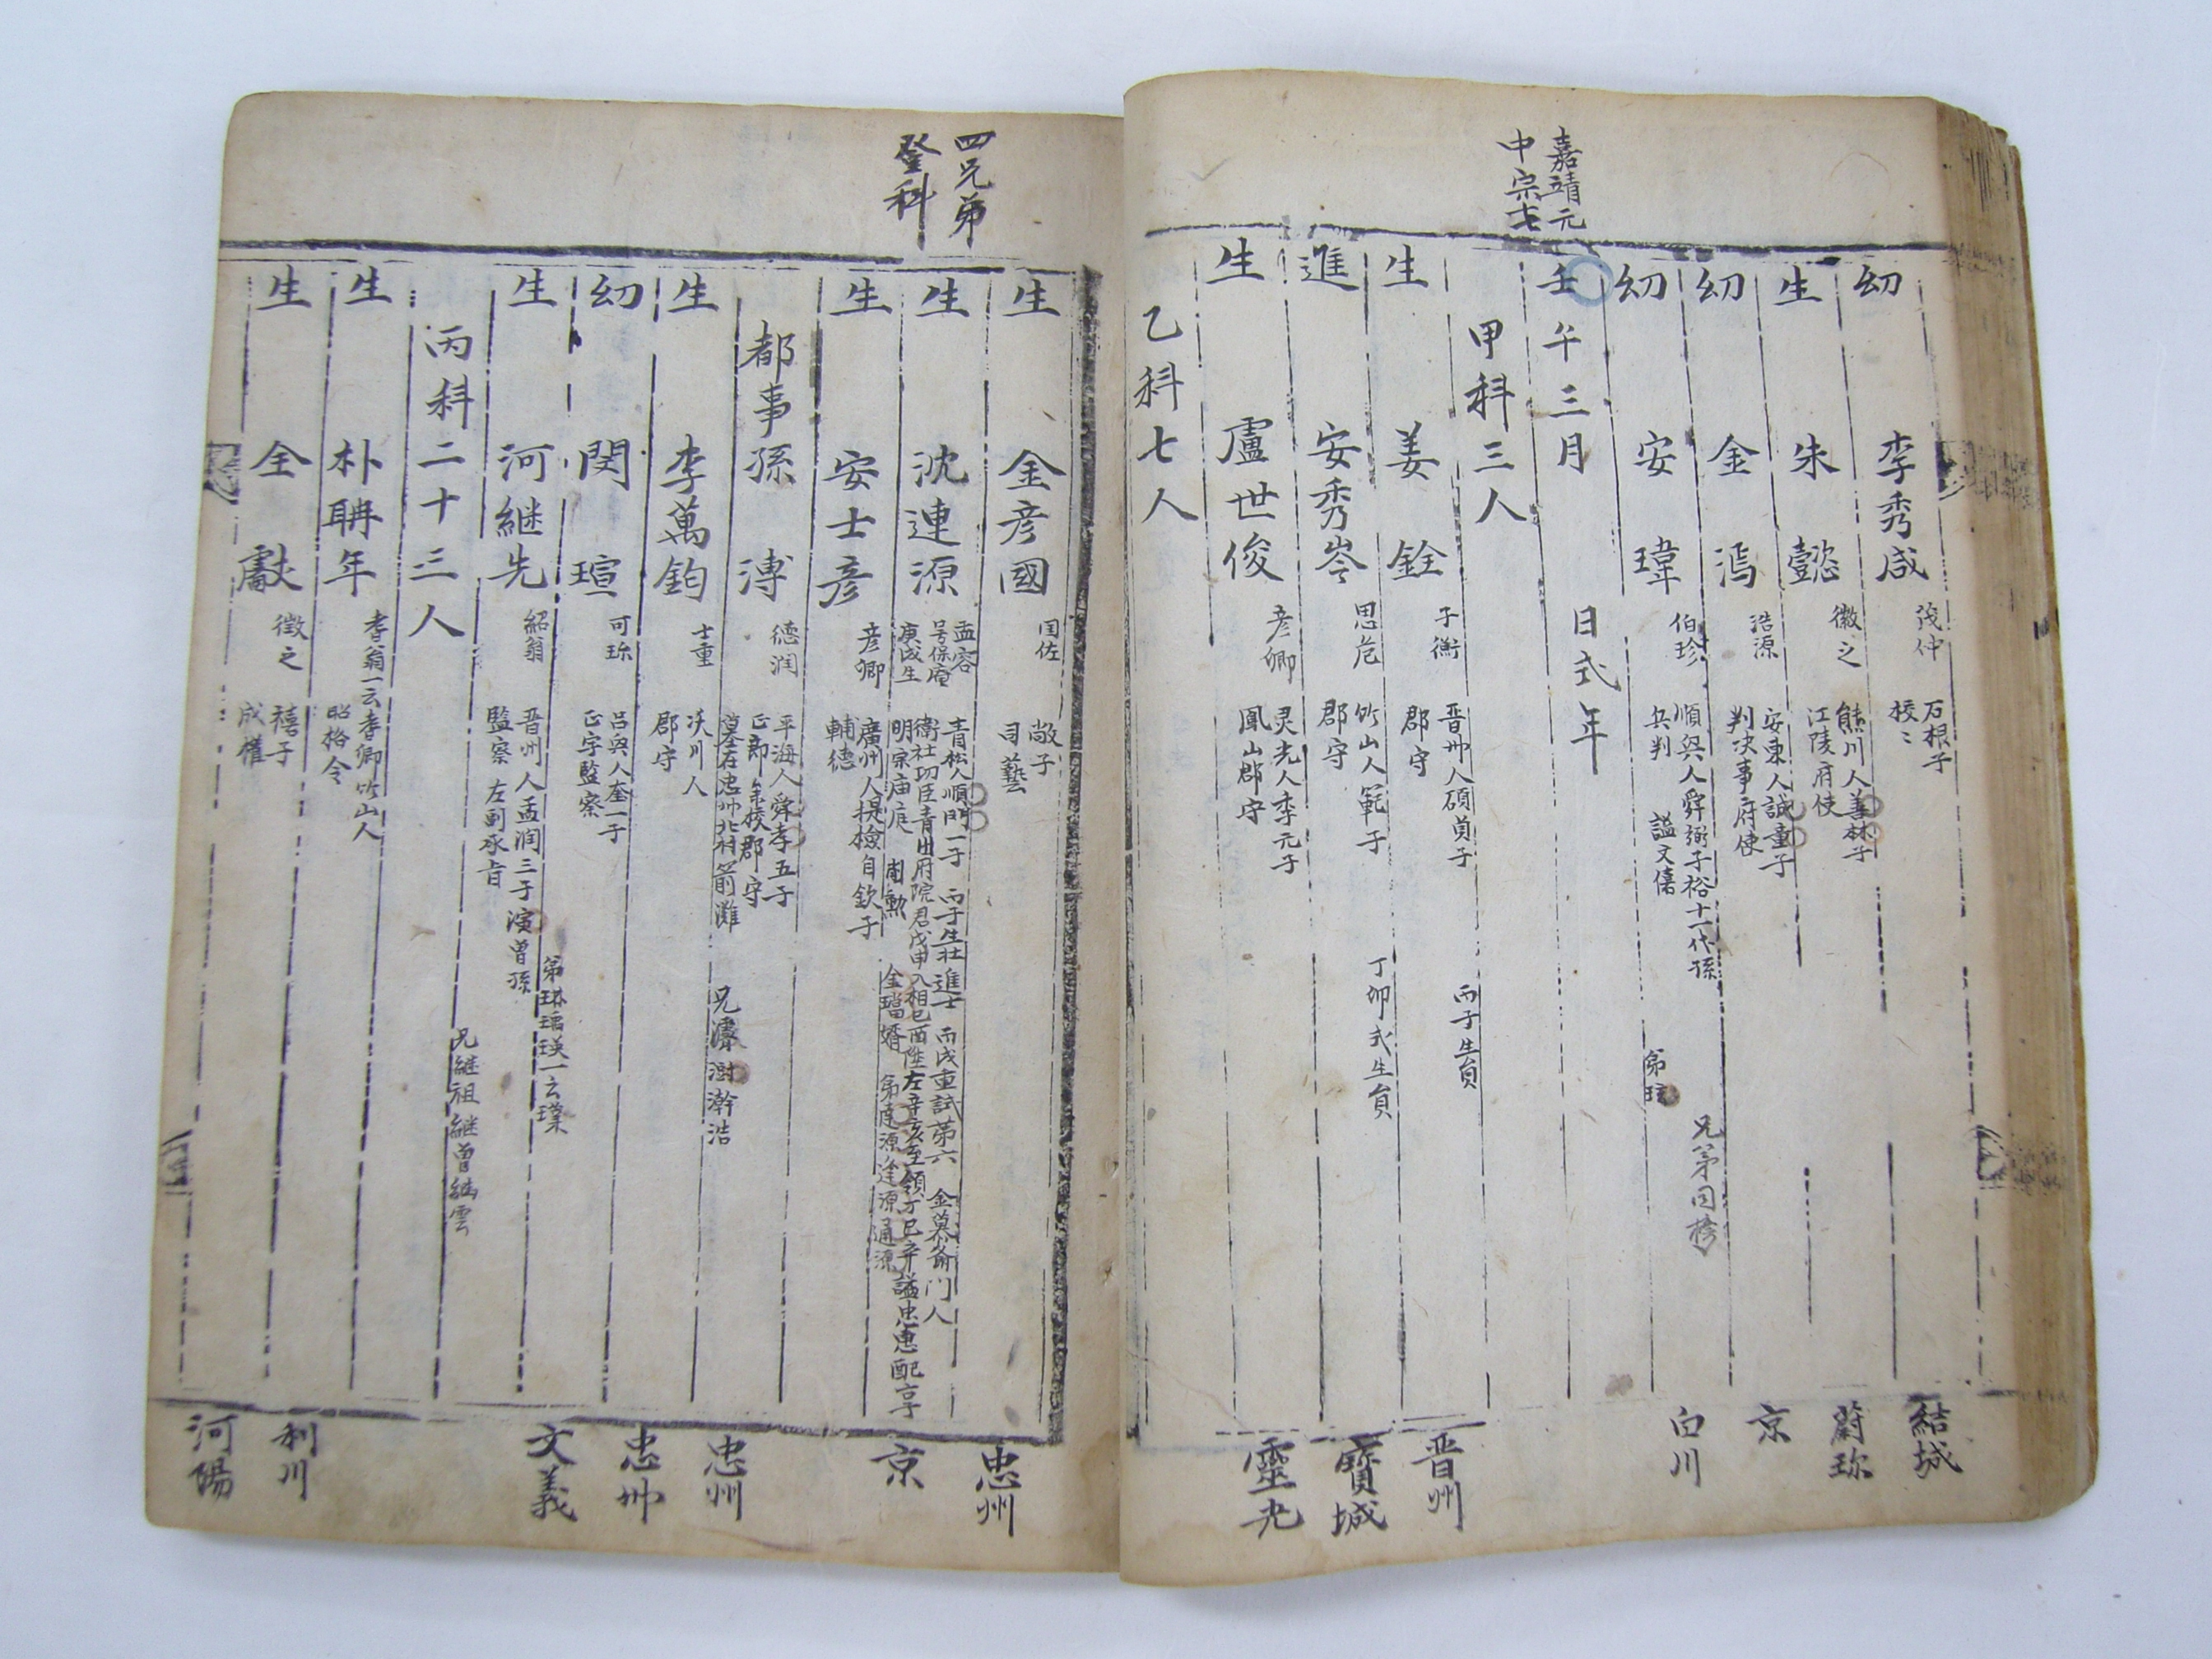 幼 李秀咸 茂仲 石根子
校〻 結城
生 朱懿 徽之 熊川人善林子
江陵府使 蔚珎
幼 金漹 浩源 安東人誠童子
判决事府使 京
幼 安瑋 伯珍 順興人舜弼子裕十一代孫
兵判 謚文僖 弟玹 兄弟同榜 白川
嘉靖元
中宗七
壬午三月 日式年
甲科三人
生 姜銓 子衡 晋州人碩貞子 丙子生員
郡守 晋州
進 安秀岑 思危 竹山人範子
郡守 丁卯式生員 寶城
生 盧世俊 彦卿 灵光人季元子
鳳山郡守 靈光
乙科七人
四兄弟
登科
生 金彦國 囯佐 敞子
司藝 忠州
生 沈連源 孟容
号保庵
庚戌生
青松人順門一子 丙子生壯進士 丙戌重試第六 金慕齋門人
衛社功臣青出府院君戊申入相己酉陞左辛亥至領丁巳卒謚忠惠配享
明宗庙庭 削勲 金璫婿 弟逢源通源
生 安士彦 彦卿 廣州人提檢自欽子
輔德 京
都事 孫溥 德潤 平海人舜孝五子
正郎 郡守
墓在忠州北村箭灘 兄濬澍瀚浩
生 李萬鈞 士重 夾川人
郡守 忠州
幼 閔瑄 可珎 呂興人奎一子
正字監察 忠州
生 河継先 紹翁 晋州人孟潤三子演曾孫 弟琳瑀瑛一云璞
監察 左副承旨 兄継祖継曾継雲 文義
丙科二十三人
生 朴聃年 耆翁一云耆卿竹山人
昭格令 利川
生 全獻 徵之 禧子
成權 河陽